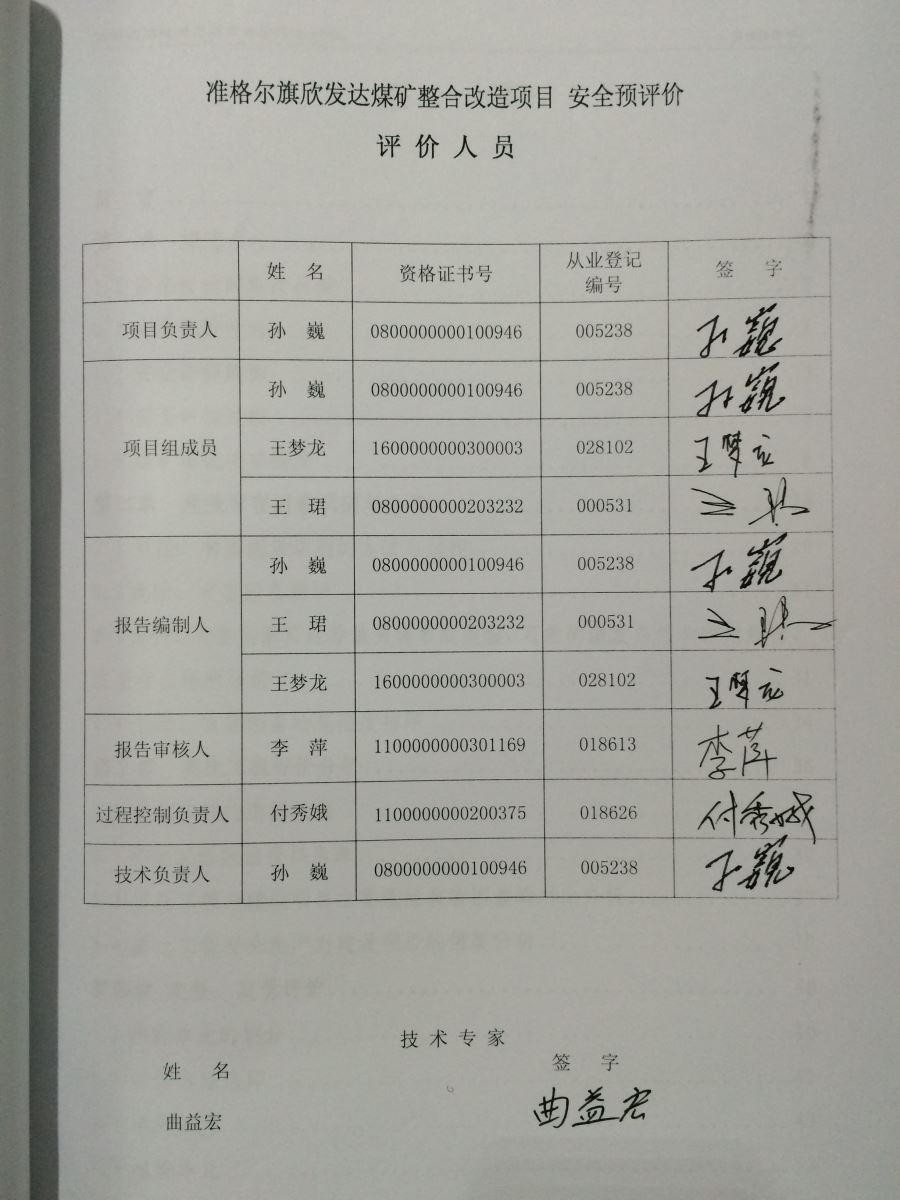 准格尔旗欣发达煤矿整合改造项目 安全预评价
评 价 人 员
姓 名 资格证书号 从业登记编号 签 字
项目负责人 孙 巍 0800000000100946 005238 孙巍
项目组成员 孙 巍 0800000000100946 005238 孙巍
王梦龙 1600000000300003 028102 王梦龙
王 珺 0800000000203232 000531 王珺
报告编制人 孙 巍 0800000000100946 005238 孙巍
王 珺 0800000000203232 000531 王珺
王梦龙 1600000000300003 028102 王梦龙
报告审核人 李 萍 1100000000301169 018613 李萍
过程控制负责人 付秀娥 1100000000200375 018626 付秀娥
技术负责人 孙 巍 0800000000100946 005238 孙巍
技 术 专 家
姓 名 签 字
曲益宏 曲益宏